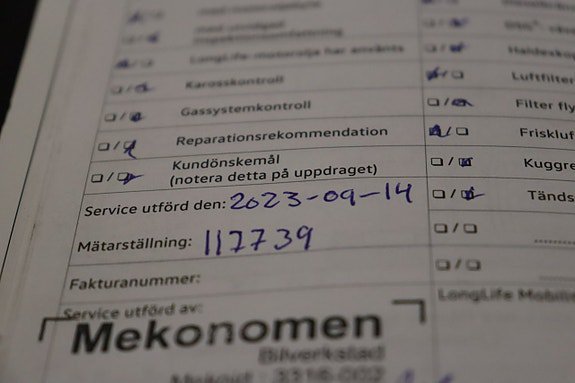 LongLife-motorolja har använts
Karosskontroll
Gassystemkontroll
Reparationsrekommendation
Kundönskemål
(notera detta på uppdraget)
Service utförd den: 2023-09-14
Mätarställning: 117739
Fakturanummer:
Service utförd av:
Mekonomen
Bilverkstad
Luftfilter
Filter fly
Friskluf
Kuggre
Tänds
LongLife Mobil